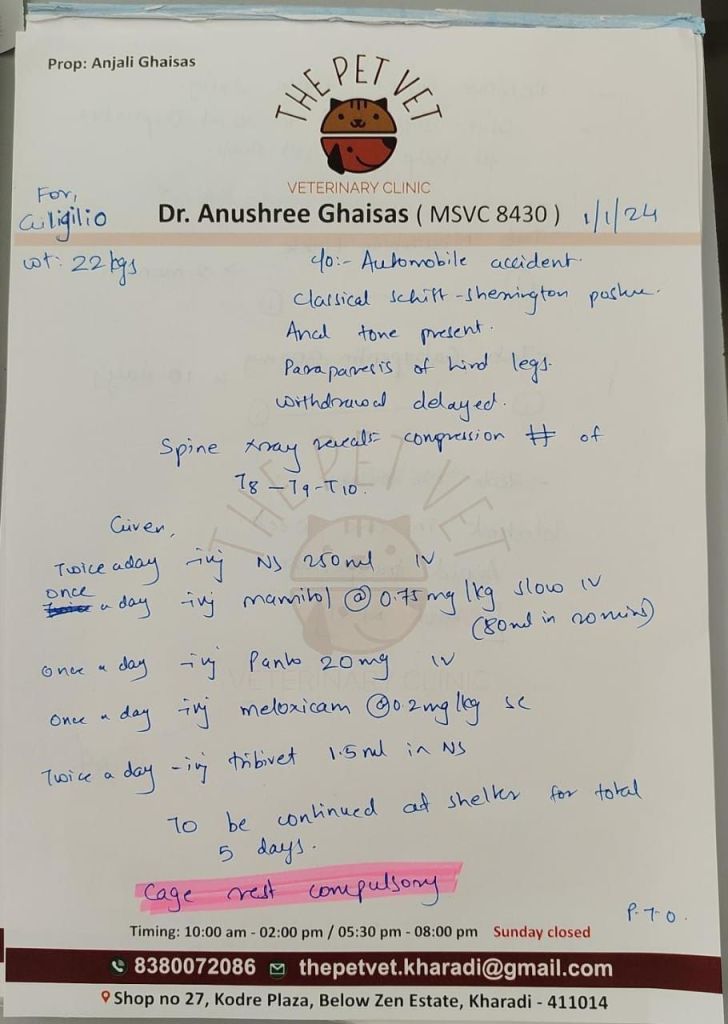 Prop: Anjali Ghaisas
THE PET VET
VETERINARY CLINIC
For,
Giligilio
Dr. Anushree Ghaisas ( MSVC 8430 ) 1/1/24
wt: 22 kgs
c/o:- Automobile accident.
Classical schiff-sherrington posture.
Anal tone present.
Paraparesis of hind legs.
withdrawal delayed.
Spine xray reveals compression # of
T8-T9-T10.
Given,
Twice a day -inj NS 250ml IV
once a day -inj mannitol @ 0.75mg/kg slow IV
(80ml in 20mins)
once a day -inj Panto 20mg IV
once a day -inj meloxicam @0.2mg/kg sc
Twice a day -inj tribivet 1.5ml in NS
To be continued at shelter for total
5 days.
Cage rest compulsory
P.T.O.
Timing: 10:00 am - 02:00 pm / 05:30 pm - 08:00 pm Sunday closed
8380072086 thepetvet.kharadi@gmail.com
Shop no 27, Kodre Plaza, Below Zen Estate, Kharadi - 411014